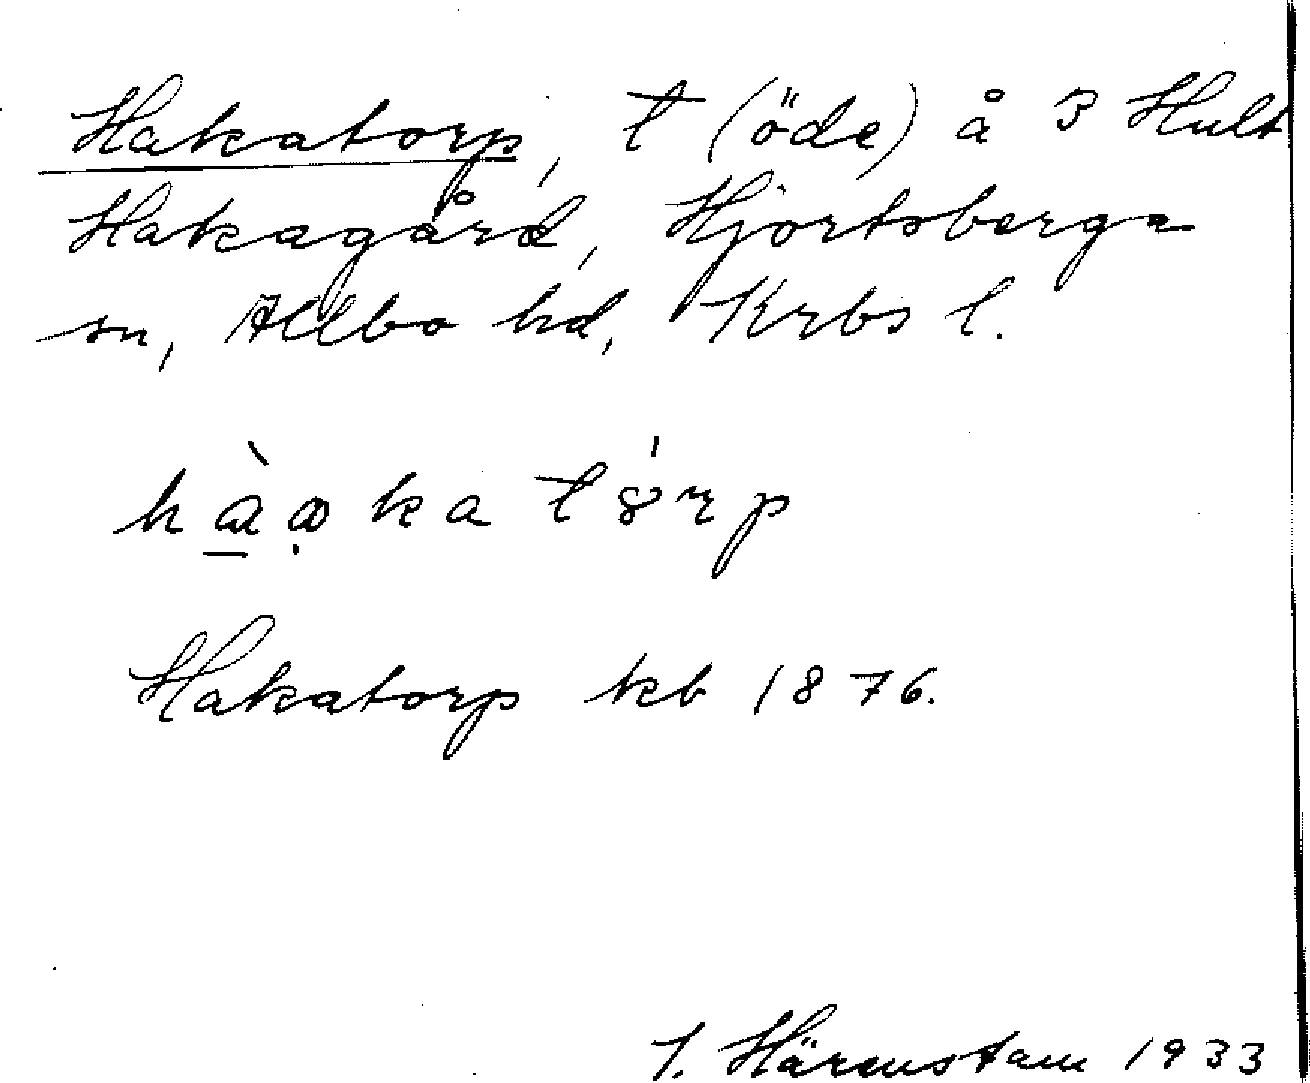 Hakatorp, t (öde) å 3 Hult
Hakagård, Hjortsberga
sn, Allbo hd, Krbs l.
Hakatorp kb 1876.
J. Härenstam 1933